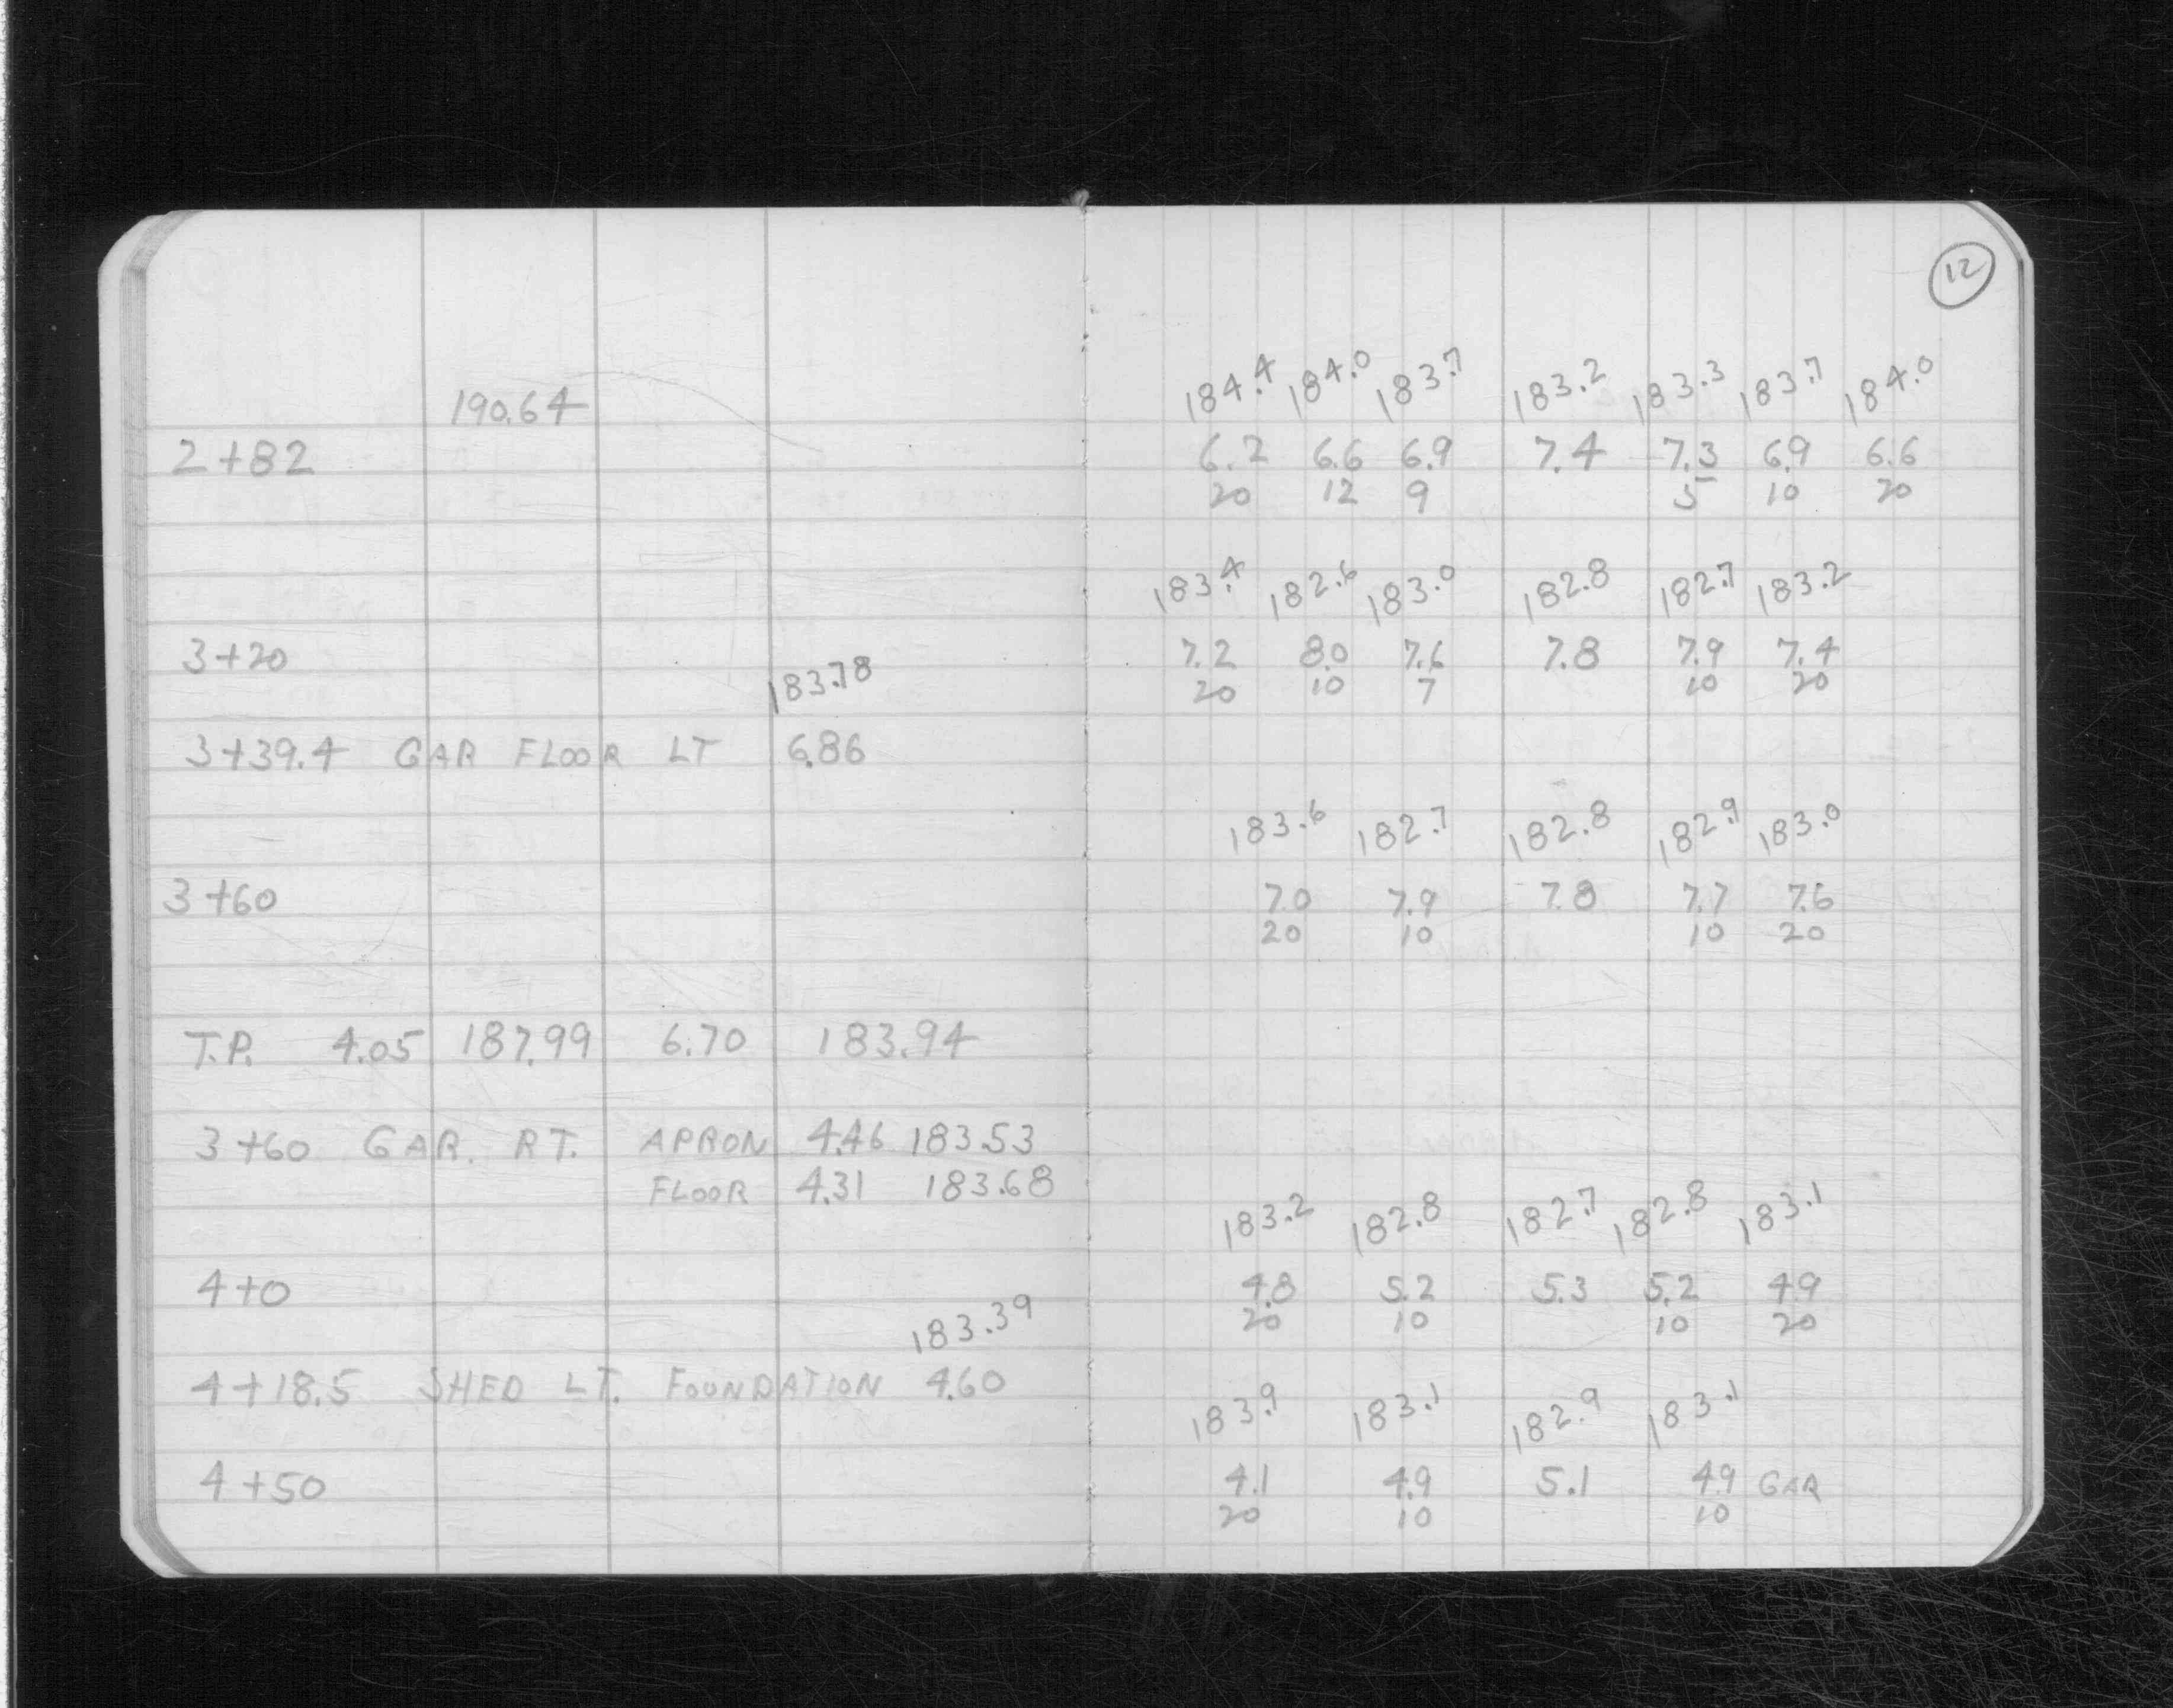 12
190.64
184.4 184.0 183.7 183.2 183.3 183.7 184.0
2+82 6.2 6.6 6.9 7.4 7.3 6.9 6.6
20 12 9 5 10 20
183.4 182.6 183.0 182.8 182.7 183.2
3+20 7.2 8.0 7.6 7.8 7.9 7.4
20 10 7 10 20
183.78
3+39.4 GAR FLOOR LT 6.86
183.6 182.7 182.8 182.9 183.0
3+60 7.0 7.9 7.8 7.7 7.6
20 10 10 20
T.P. 4.05 187.99 6.70 183.94
3+60 GAR. RT. APRON 4.46 183.53
FLOOR 4.31 183.68
183.2 182.8 182.7 182.8 183.1
4+0 4.8 5.2 5.3 5.2 4.9
20 10 10 20
183.39
4+18.5 SHED LT. FOUNDATION 4.60
183.9 183.1 182.9 183.1
4+50 4.1 4.9 5.1 4.9 GAR
20 10 10